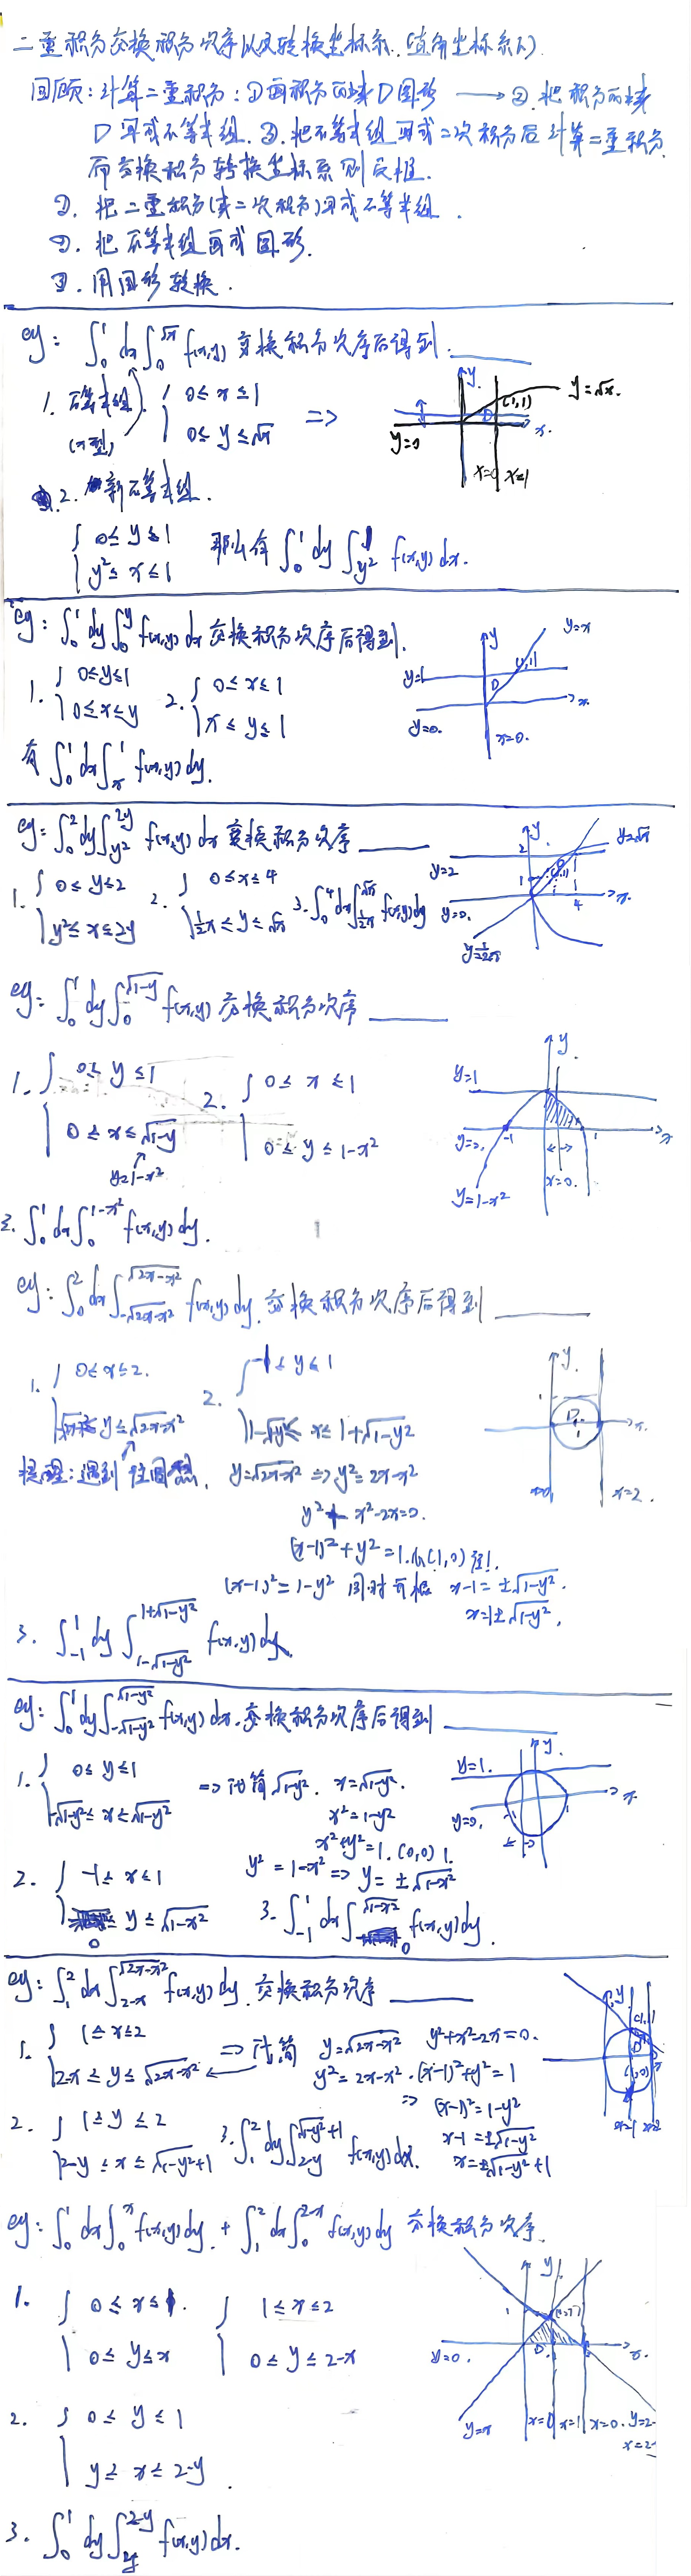 二重积分交换积分次序以及转换坐标系.(直角坐标系下)
回顾:计算二重积分:①画积分区域D图形 → ②.把积分区域
D写成不等式组.③.把不等式组写成二次积分后计算二重积分.
而交换积分转换坐标系则反推.
①.把二重积分(或二次积分)写成不等式组.
②.把不等式组画成图形.
③.用图形转换.
eg: ∫₀¹dx∫₀^√x f(x,y) 交换积分次序后得到.____
1. 不等式组 (x型) { 0≤x≤1
0≤y≤√x ⇒
y. y=√x. (1,1) D x. y=0 x=0 x=1
2. 新不等式组.
{ 0≤y≤1
y²≤x≤1 那么有 ∫₀¹dy∫_{y²}^1 f(x,y)dx.
eg: ∫₀¹dy∫₀^y f(x,y)dx 交换积分次序后得到.
1. { 0≤y≤1
0≤x≤y 2. { 0≤x≤1
x≤y≤1
有 ∫₀¹dx∫_x^1 f(x,y)dy.
y y=x y=1 (1,1) D x. y=0. x=0.
eg: ∫₀²dy∫_{y²}^{2y} f(x,y)dx 交换积分次序____
1. { 0≤y≤2
y²≤x≤2y 2. { 0≤x≤4
½x≤y≤√x 3. ∫₀⁴dx∫_{½x}^{√x} f(x,y)dy
y. 2 y=2 1 (1,1) 4 x. y=0. y=½x
eg: ∫₀¹dy∫₀^{√1-y} f(x,y) 交换积分次序____
1. { 0≤y≤1
0≤x≤√1-y
y=1-x²
2. { 0≤x≤1
0≤y≤1-x²
y. y=1 y=0. -1 1 x x=0. y=1-x²
3. ∫₀¹dx∫₀^{1-x²} f(x,y)dy.
eg: ∫₀²dx∫_{-√2x-x²}^{√2x-x²} f(x,y)dy.交换积分次序后得到____
1. { 0≤x≤2.
≤y≤√2x-x²
2. { -1≤y≤1
1-√1-y²≤x≤1+√1-y²
y. 1 D. 1 x. x=0 x=2.
提醒:遇到往圆想. y=√2x-x² ⇒ y²=2x-x²
y²+x²-2x=0.
(x-1)²+y²=1.(1,0)
(x-1)²=1-y² 同时开根 x-1=±√1-y².
x=1±√1-y².
3. ∫_{-1}^1 dy∫_{1-√1-y²}^{1+√1-y²} f(x,y)dx.
eg: ∫₀¹dy∫_{-√1-y²}^{√1-y²} f(x,y)dx.交换积分次序后得到____
1. { 0≤y≤1
-√1-y²≤x≤√1-y² ⇒ 化简√1-y². x=√1-y².
x²=1-y²
x²+y²=1.(0,0) 1.
y. y=1. y=0. x
2. { -1≤x≤1
0≤y≤√1-x² y²=1-x² ⇒ y=±√1-x²
3. ∫_{-1}^1 dx∫₀^{√1-x²} f(x,y)dy.
eg: ∫₁²dx∫_{2-x}^{√2x-x²} f(x,y)dy.交换积分次序____
1. { 1≤x≤2
2-x≤y≤√2x-x² ⇒ 化简 y=√2x-x² y²+x²-2x=0.
y²=2x-x².(x-1)²+y²=1
⇒ (x-1)²=1-y²
x-1=±√1-y²
x=±√1-y²+1
2. { 1≤y≤2
2-y≤x≤√1-y²+1 3. ∫₁²dy∫_{2-y}^{√1-y²+1} f(x,y)dx.
y. x=1 x=2
eg: ∫₀¹dx∫₀^x f(x,y)dy.+∫₁²dx∫₀^{2-x} f(x,y)dy 交换积分次序.
1. { 0≤x≤1.
0≤y≤x { 1≤x≤2
0≤y≤2-x
y 1 D. x. y=0. y=x x=0 x=1 x=0. y=2-
x=2-
2. { 0≤y≤1
y≤x≤2-y.
3. ∫₀¹dy∫_y^{2-y} f(x,y)dx.